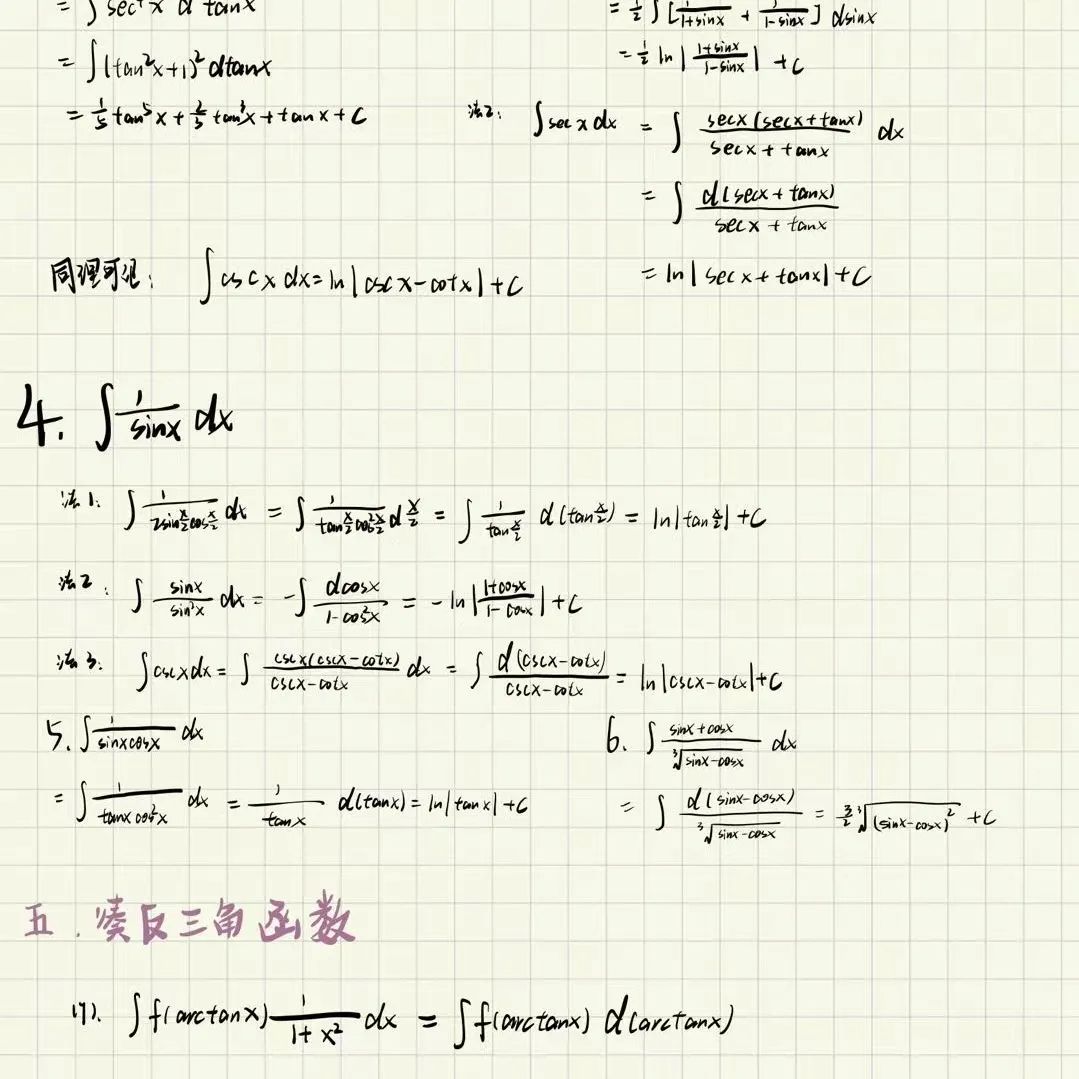 = ∫ sec⁴x d tanx
= ∫(tan²x+1)² dtanx
= 1/5 tan⁵x + 2/3 tan³x + tanx + C
= 1/2 ∫ [1/(1+sinx) + 1/(1-sinx)] dsinx
= 1/2 ln|(1+sinx)/(1-sinx)| + C
法2: ∫secx dx = ∫ secx(secx+tanx)/(secx+tanx) dx
= ∫ d(secx+tanx)/(secx+tanx)
= ln|secx+tanx|+C
同理可证: ∫cscx dx = ln|cscx-cotx|+C
4. ∫ 1/sinx dx
法1: ∫ 1/(2sin x/2 cos x/2) dx = ∫ 1/(tan x/2 cos² x/2) d x/2 = ∫ 1/(tan x/2) d(tan x/2) = ln|tan x/2|+C
法2: ∫ sinx/sin²x dx = -∫ dcosx/(1-cos²x) = -ln|(1+cosx)/(1-cosx)|+C
法3: ∫cscx dx = ∫ cscx(cscx-cotx)/(cscx-cotx) dx = ∫ d(cscx-cotx)/(cscx-cotx) = ln|cscx-cotx|+C
5. ∫ 1/(sinxcosx) dx
= ∫ 1/(tanxcos²x) dx = 1/tanx d(tanx) = ln|tanx|+C
6. ∫ (sinx+cosx)/∛(sinx-cosx) dx
= ∫ d(sinx-cosx)/∛(sinx-cosx) = 3/2 ∛(sinx-cosx)² + C
五.凑反三角函数
(1). ∫f(arctanx) 1/(1+x²) dx = ∫f(arctanx) d(arctanx)